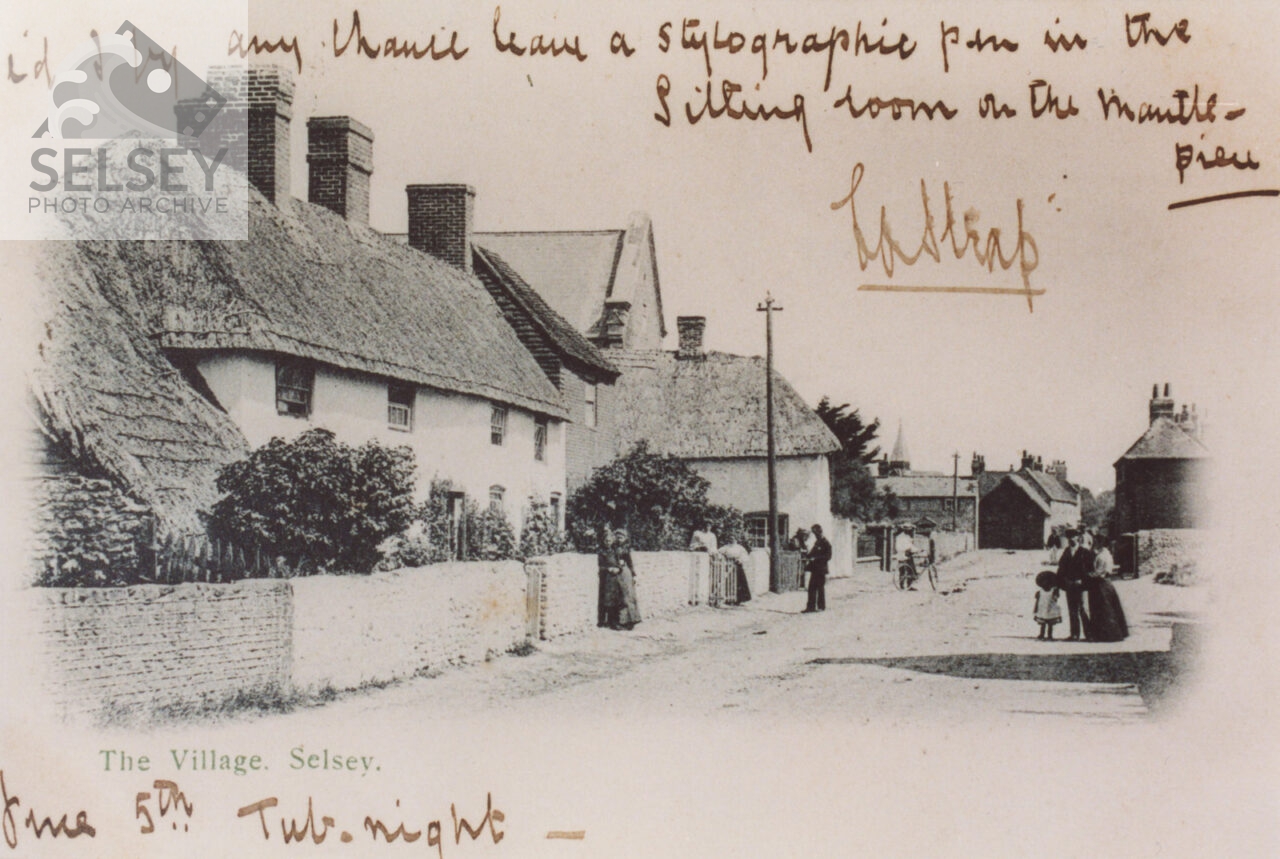 id I by any chance leave a stylographic pen in the
Sitting room on the Mantle-
piece
SELSEY
PHOTO ARCHIVE
The Village. Selsey.
June 5th Tub-night —